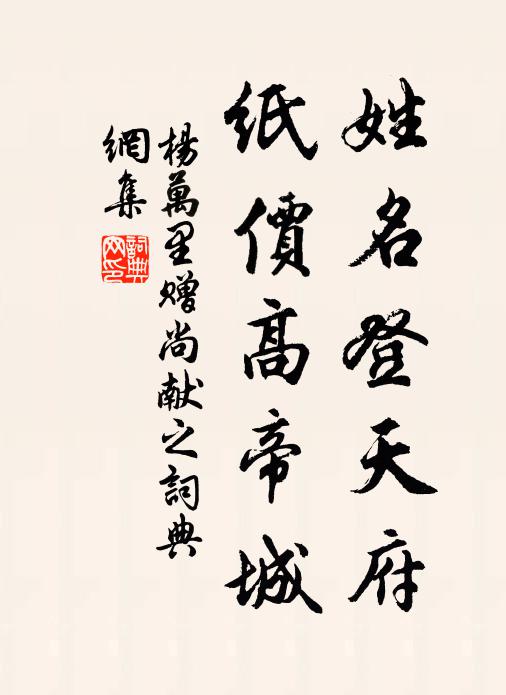 姓名登天府
紙價高帝城
楊萬里贈尚献之詞典
網集
詞典网印